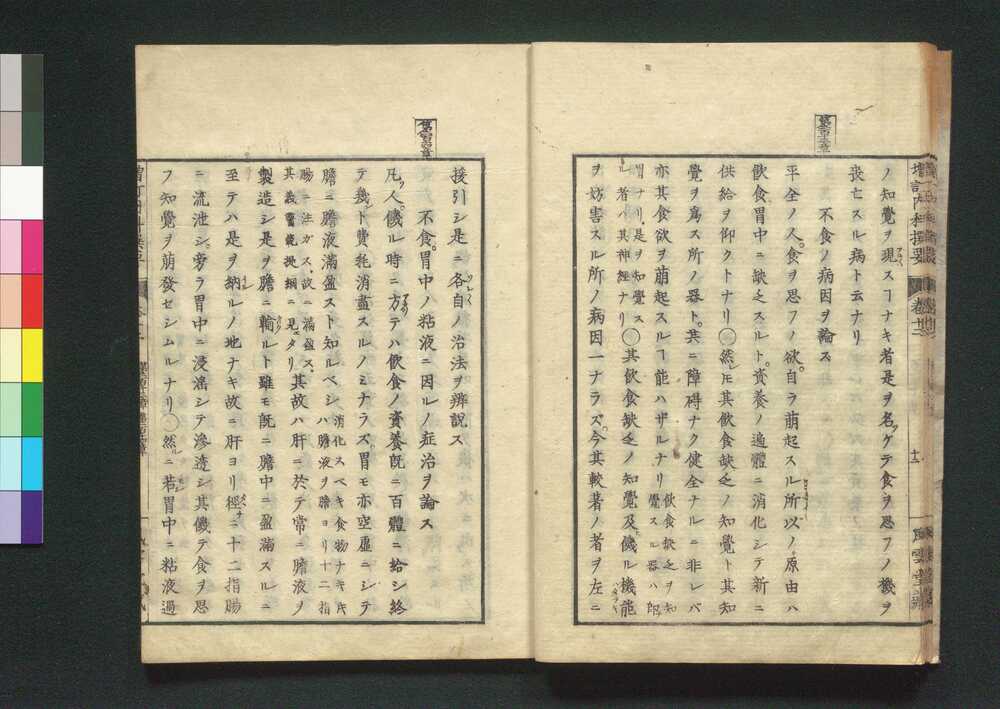 ノ知覺ヲ現スヿナキ者是ヲ名ケテ食ヲ思フノ機ヲ
喪亡スル病ト云ナリ
不食ノ病因ヲ論ス
平全ノ人食ヲ思フノ欲自ラ萠起スル所以ノ原由ハ
飲食胃中ニ缺乏スルト資養ノ遍體ニ消化シテ新ニ
供給ヲ仰クトナリ○然レ𪜈其飲食缺乏ノ知覺ト其知
覺ヲ爲ス所ノ器ト共ニ障碍ナク健全ナルニ非レバ
亦其食欲ヲ萠起スルヿ能ハザルナリ 飲食缺乏ヲ知覺スル器ハ即
胃ナリ是ヲ知覺スル者ハ其神經ナリ○其飲食缺乏ノ知覺及饑ル機能
ヲ妨害スル所ノ病因一ナラズ今其較著ノ者ヲ左ニ
増訂内科撰要
風雲堂藏
援引シ是ニ各自ノ治法ヲ辨説ス
不食胃中ノ粘液ニ因ルノ症治ヲ論ス
凡人饑ル時ニ方テハ飲食ノ資養既ニ百體ニ給シ終
テ幾ト費耗消盡スルノミナラズ胃モ亦空虚ニシテ
膽ニ膽液滿盈スト知ルベシ 消化スベキ食物ナキ片ハ膽液ヲ膽ヨリ十二指
腸ニ注ガス故ニ滿盈ス其義醫範提綱ニ見タリ 其故ハ肝ニ於テ常ニ膽液ヲ
製造シ是ヲ膽ニ輸ルト雖モ既ニ膽中ニ盈滿スルニ
至テハ是ヲ納ルノ地ナキ故ニ肝ヨリ徑ニ十二指腸
ニ流泄シ旁ラ胃中ニ浸漏シテ滲透シ其饑テ食ヲ思
フ知覺ヲ萠發セシムルナリ○然ルニ若胃中ニ粘液過